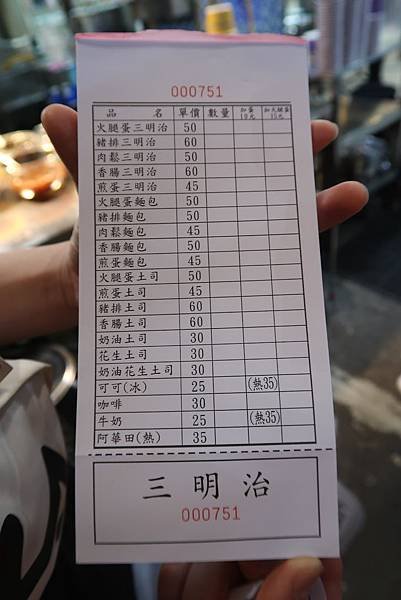 000751
品 名 單價 數量 加蛋10元 加火腿蛋15元
火腿蛋三明治 50
豬排三明治 60
肉鬆三明治 50
香腸三明治 60
煎蛋三明治 45
火腿蛋麵包 50
豬排麵包 50
肉鬆麵包 45
香腸麵包 50
煎蛋麵包 45
火腿蛋土司 50
煎蛋土司 45
豬排土司 60
香腸土司 60
奶油土司 30
花生土司 30
奶油花生土司 30
可可(冰) 25 (熱35)
咖啡 30
牛奶 25 (熱35)
阿華田(熱) 35
三明治
000751